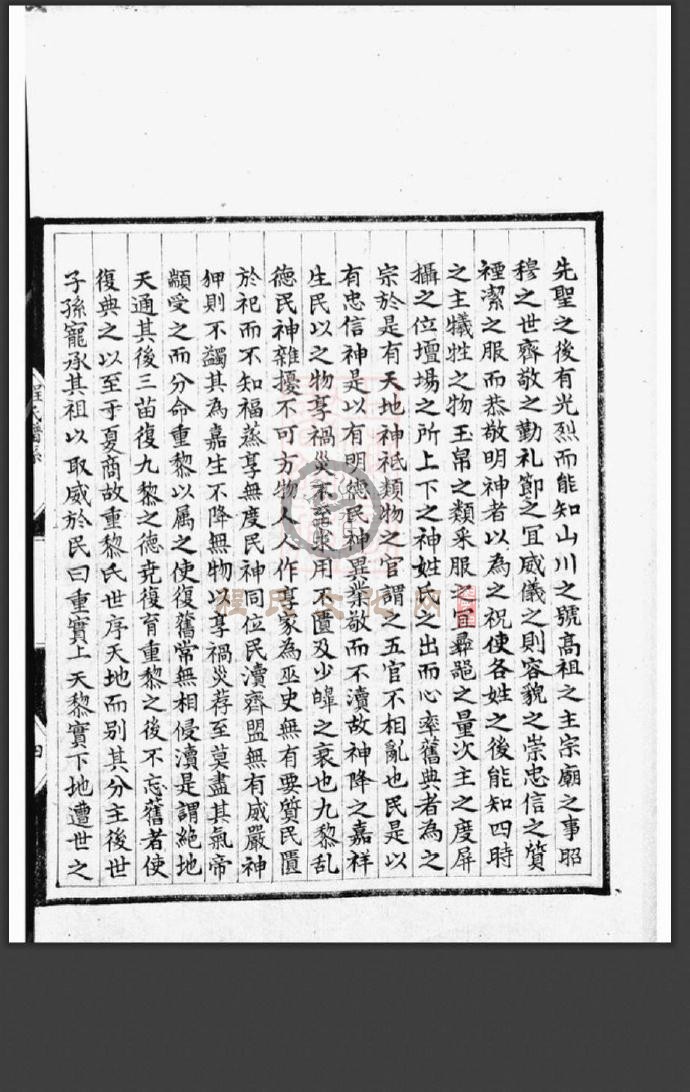 先聖之後有光烈而能知山川之號高祖之主宗廟之事昭
穆之世齊敬之勤礼節之宜威儀之則容貌之崇忠信之質
禋潔之服而恭敬明神者以為之祝使各姓之後能知四時
之主犠牲之物玉帛之類采服之宜彞噐之量次主之度屏
攝之位壇場之所上下之神姓氏之出而心率舊典者為之
宗於是有天地神祇類物之官謂之五官不相亂也民是以
有忠信神是以有明德民神異業敬而不瀆故神降之嘉祥
生民以之物享禍災不至求用不匱及少皥之衰也九黎亂
德民神雜擾不可方物人人作享家為巫史無有要質民匱
於祀而不知福蒸享無度民神同位民瀆齊盟無有威嚴神
狎則不蠲其為嘉生不降無物以享禍災荐至莫盡其氣帝
顓受之而分命重黎以属之使復舊常無相侵瀆是謂絶地
天通其後三苗復九黎之德尭復育重黎之後不忘舊者使
復典之以至于夏商故重黎氏世序天地而别其分主後世
子孫寵承其祖以取威於民曰重實上天黎實下地遭世之
程氏文化网
四